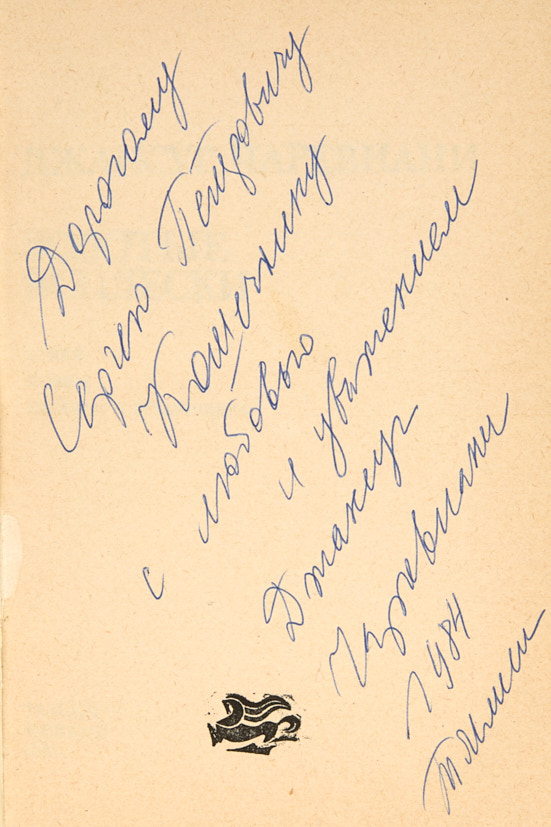 Дорогому
Сергею Петровичу
Кошечкину
с любовью
и уважением
Джансуг
Чарквиани
1984
Тбилиси